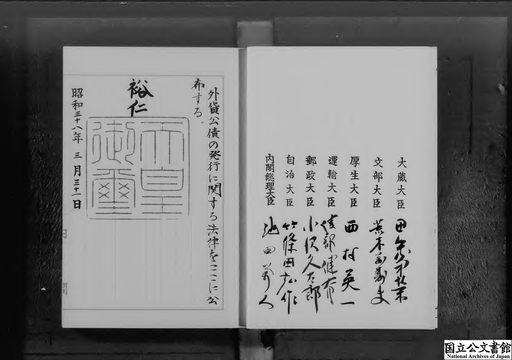 大蔵大臣 田中角榮
文部大臣 荒木萬壽夫
厚生大臣 西村英一
運輸大臣 綾部健太郎
郵政大臣 小沢久太郎
自治大臣 篠田弘作
内閣総理大臣 池田勇人
外貨公債の発行に関する法律をここに公
布する。
裕仁
天皇
御璽
昭和三十八年三月三十一日
国立公文書館
National Archives of Japan